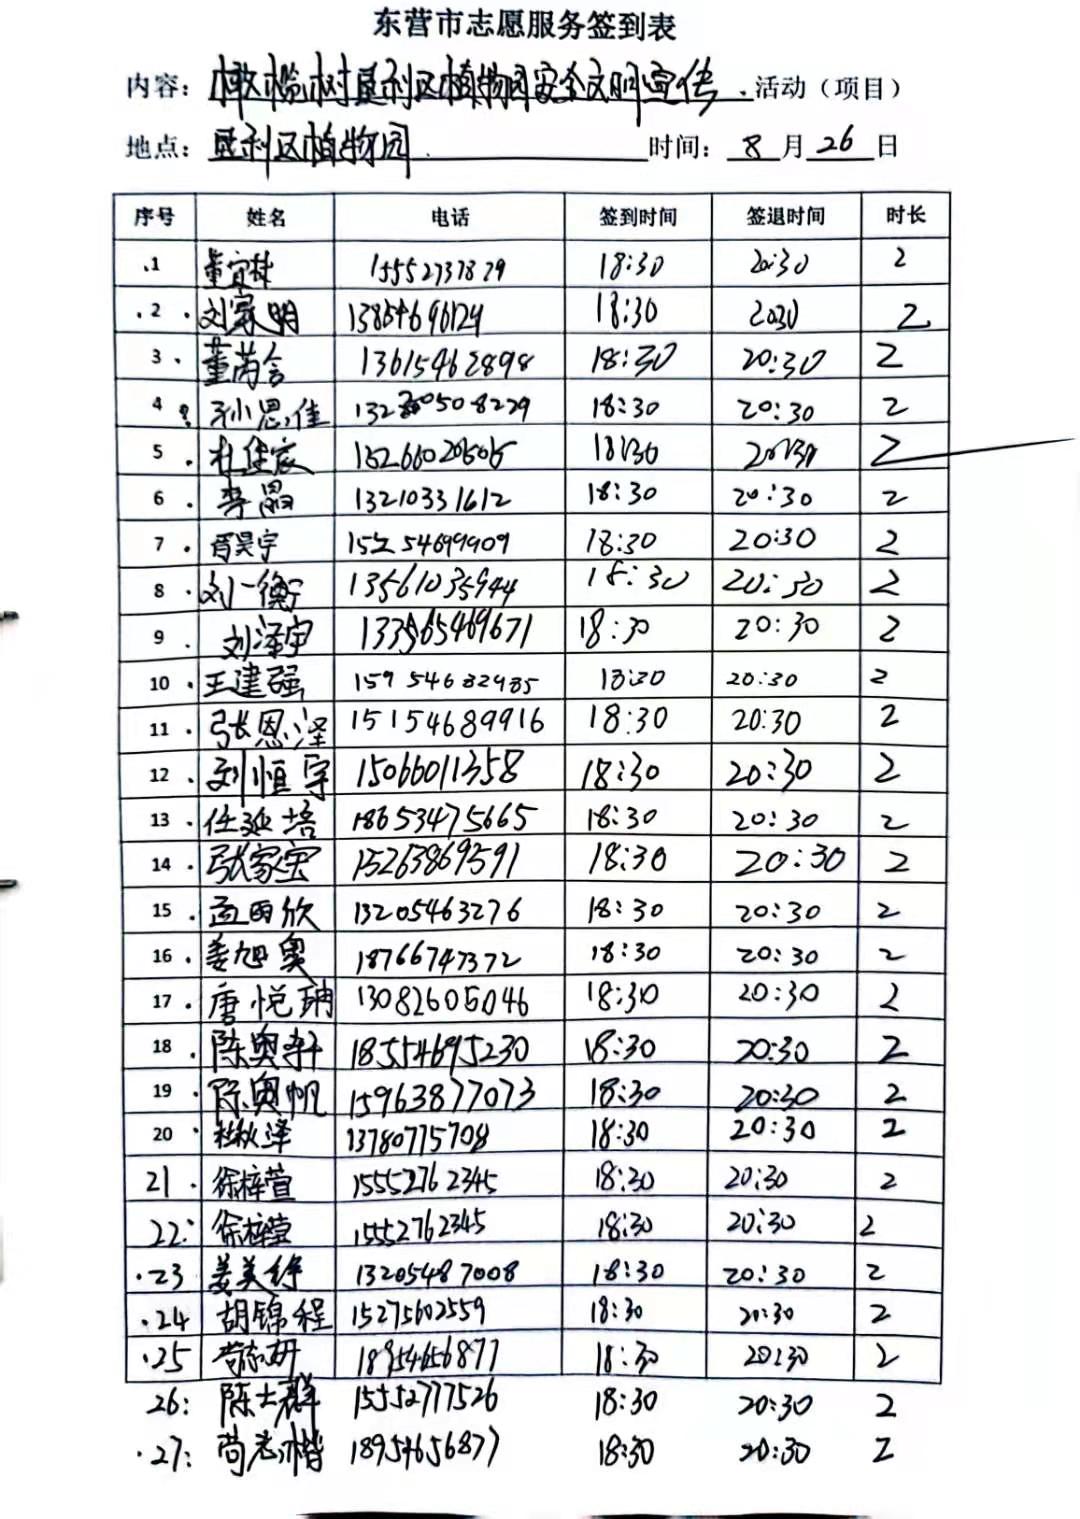 东营市志愿服务签到表
内容：橄榄树垦利区植物园安全文明宣传 活动（项目）
地点：垦利区植物园 时间：8月26日
序号 姓名 电话 签到时间 签退时间 时长
1 董宜林 15552737879 18:30 20:30 2
2 刘家明 13854696124 18:30 2030 2
3 董芮含 13615462898 18:30 20:30 2
4 孙思佳 18:30 20:30 2
5 杜佳宸 15266020505 18:30 20:30 2
6 李晶 13210331612 18:30 20:30 2
7 胥昊宇 18:30 20:30 2
8 刘一衡 13561035944 18:30 20:30 2
9 刘泽宇 18:30 20:30 2
10 王建强 15954682985 18:30 20:30 2
11 张恩泽 15154689916 18:30 20:30 2
12 刘恒宇 15066011358 18:30 20:30 2
13 任延培 18653475665 18:30 20:30 2
14 张家宝 15263869591 18:30 20:30 2
15 孟雨欣 13205463276 18:30 20:30 2
16 姜旭奥 18766747372 18:30 20:30 2
17 唐悦珃 13082605046 18:30 20:30 2
18 陈奥轩 18554695230 18:30 20:30 2
19 陈奥帆 15963877073 18:30 20:30 2
20 杜秋泽 13780775708 18:30 20:30 2
21 徐梓萱 15552762345 18:30 20:30 2
22: 徐梓莹 15552762345 18:30 20:30 2
23 姜美伊 13205487008 18:30 20:30 2
24 胡锦程 15275602559 18:30 20:30 2
25 苟志研 18954656877 18:30 20:30 2
26: 陈士群 15552777526 18:30 20:30 2
27: 苟志楷 18954656877 18:30 20:30 2